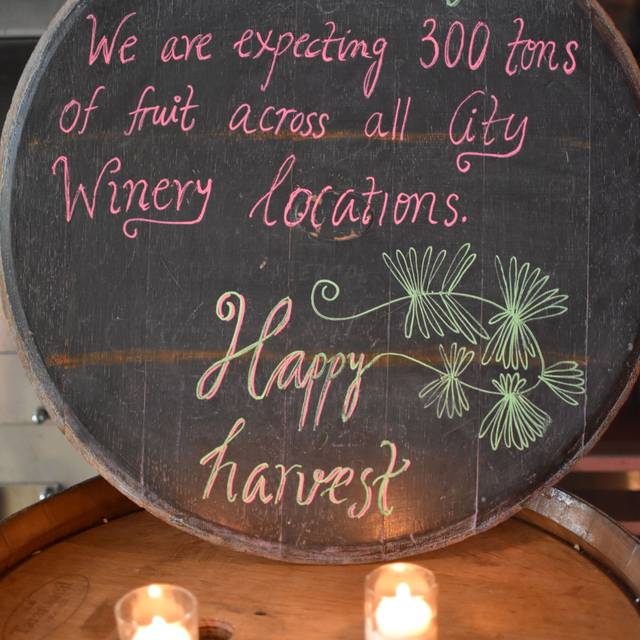 We are expecting 300 tons
of fruit across all City
Winery locations.
Happy
harvest